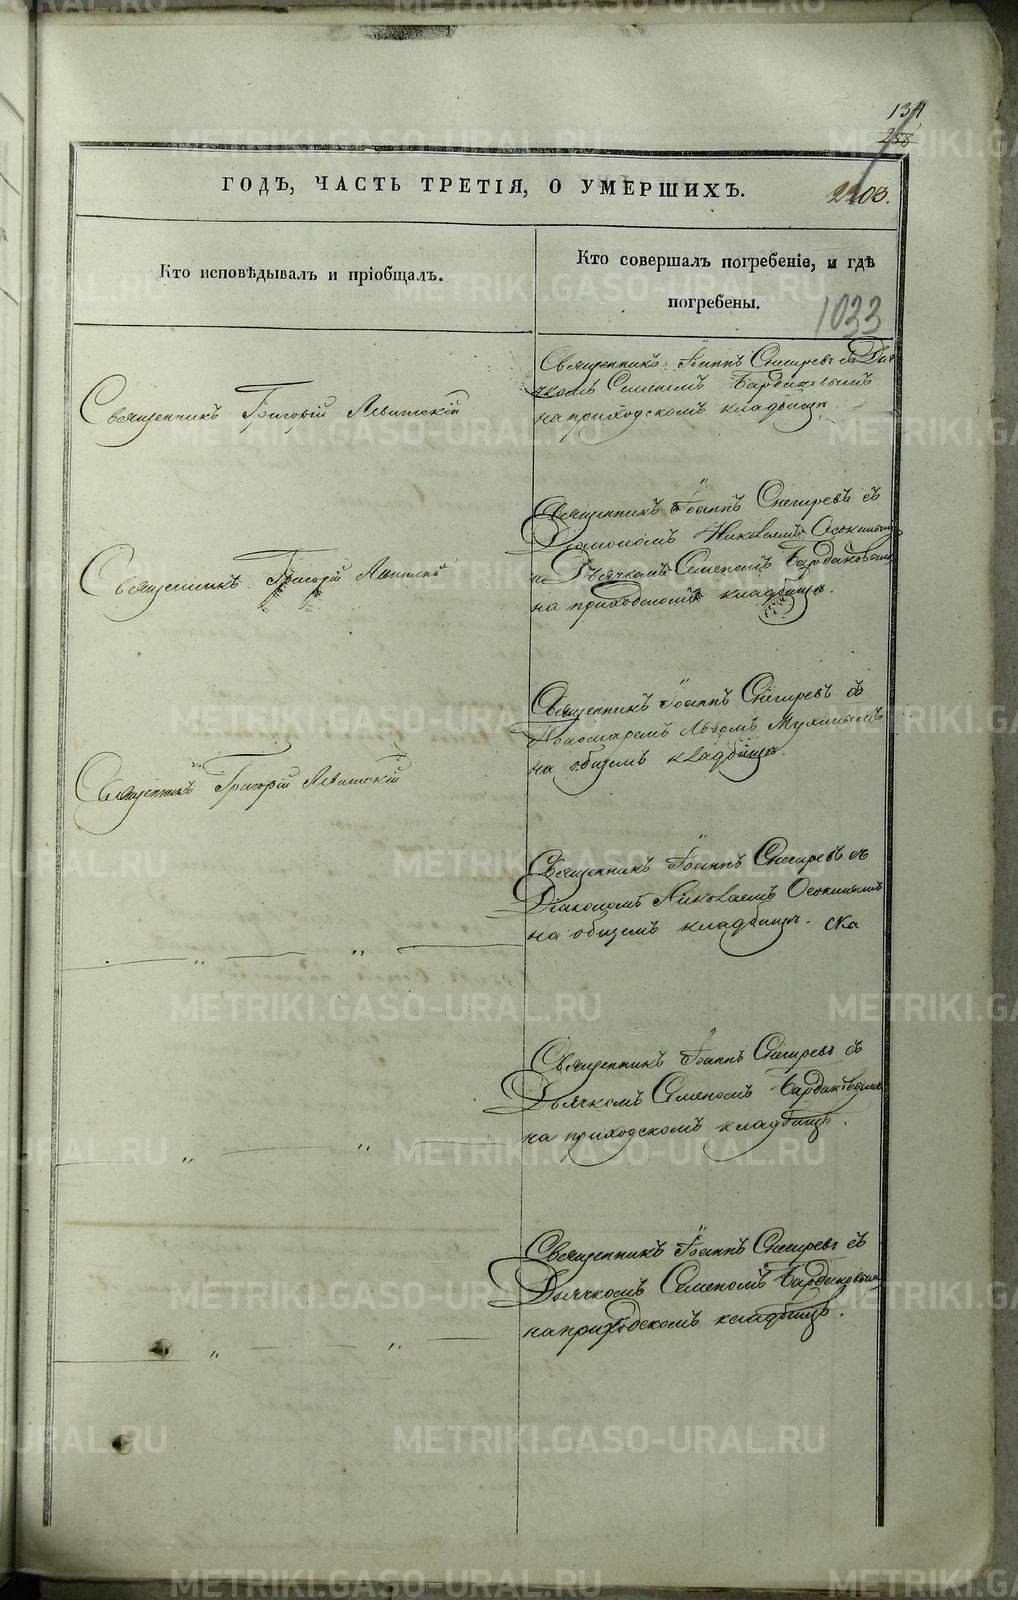 134
258
ГОДЪ, ЧАСТЬ ТРЕТІЯ, О УМЕРШИХЪ.
2203.
Кто исповѣдывалъ и пріобщалъ.
Кто совершалъ погребеніе, и гдѣ
погребены.
1033
Священникъ Григорій Левитскій
Священникъ Іоаннъ Снегиревъ съ Дья
чкомъ Семеномъ Бардаковымъ
на приходскомъ кладбищѣ.
Священникъ Григорій
Священникъ Іоаннъ Снегиревъ съ
Діакономъ Николаемъ Осокинымъ
и Дьячкомъ Семеномъ Бардаковымъ
на приходскомъ кладбищѣ.
Священникъ Григорій Левитскій
Священникъ Іоаннъ Снегиревъ съ
Пономаремъ Львомъ Мухинымъ
на общемъ кладбищѣ.
Священникъ Іоаннъ Снегиревъ съ
Діакономъ Николаемъ Осокинымъ
на общемъ кладбищѣ.
" "
Священникъ Іоаннъ Снегиревъ съ
Дьячкомъ Семеномъ Бардаковымъ
на приходскомъ кладбищѣ.
" "
Священникъ Іоаннъ Снегиревъ съ
Дьячкомъ Семеномъ Бардаковымъ
на приходскомъ кладбищѣ.
" "
METRIKI.GASO-URAL.RU